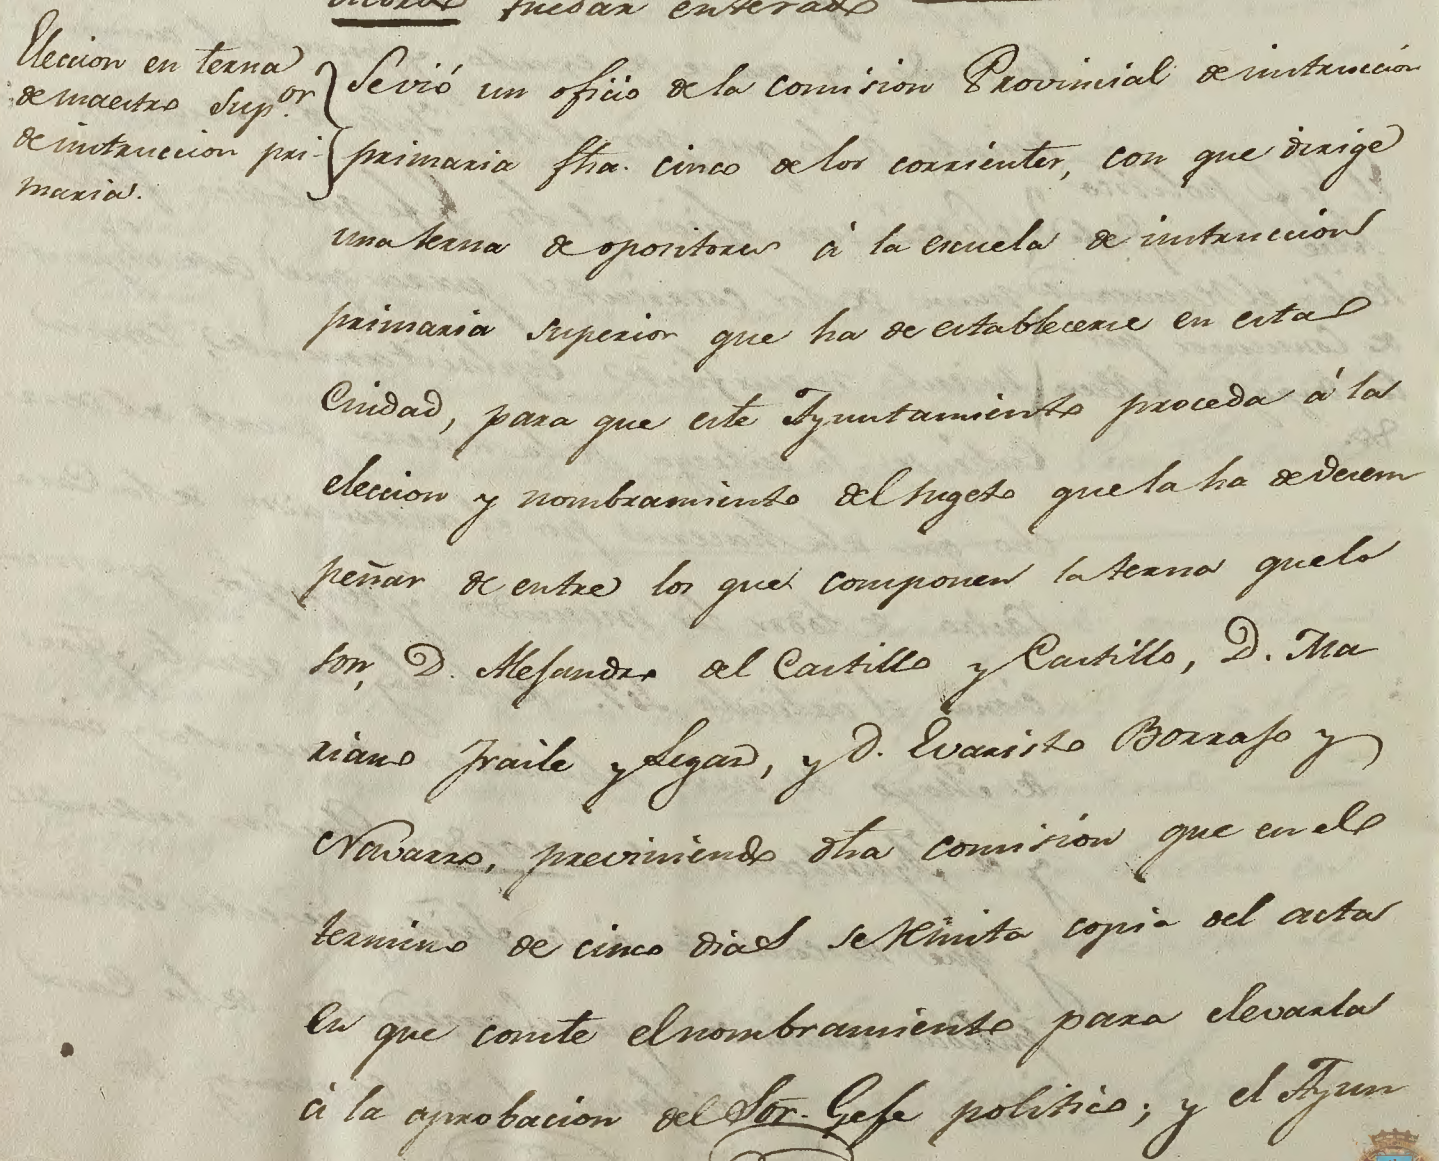 quedar enterado
Eleccion en terna
de maestro Sup.or
de instruccion pri-
maria.
Se vió un oficio de la comision Provincial de instruccion
primaria fha. cinco de los corrientes, con que dirige
una terna de opositores á la escuela de instruccion
primaria superior que ha de establecerse en esta
Ciudad, para que este Ayuntamiento proceda á la
eleccion y nombramiento del sugeto que la ha de desem
peñar de entre los que componen la terna que lo
son, D. Alejandro del Castillo y Castillo, D. Ma
riano Fraile y Segar, y D. Evaristo Borrajo y
Navarro, previniendo dha comision que en el
termino de cinco dias se remita copia del acta
en que conste el nombramiento para elevarla
á la aprobacion del Sor. Gefe politico; y el Ayun